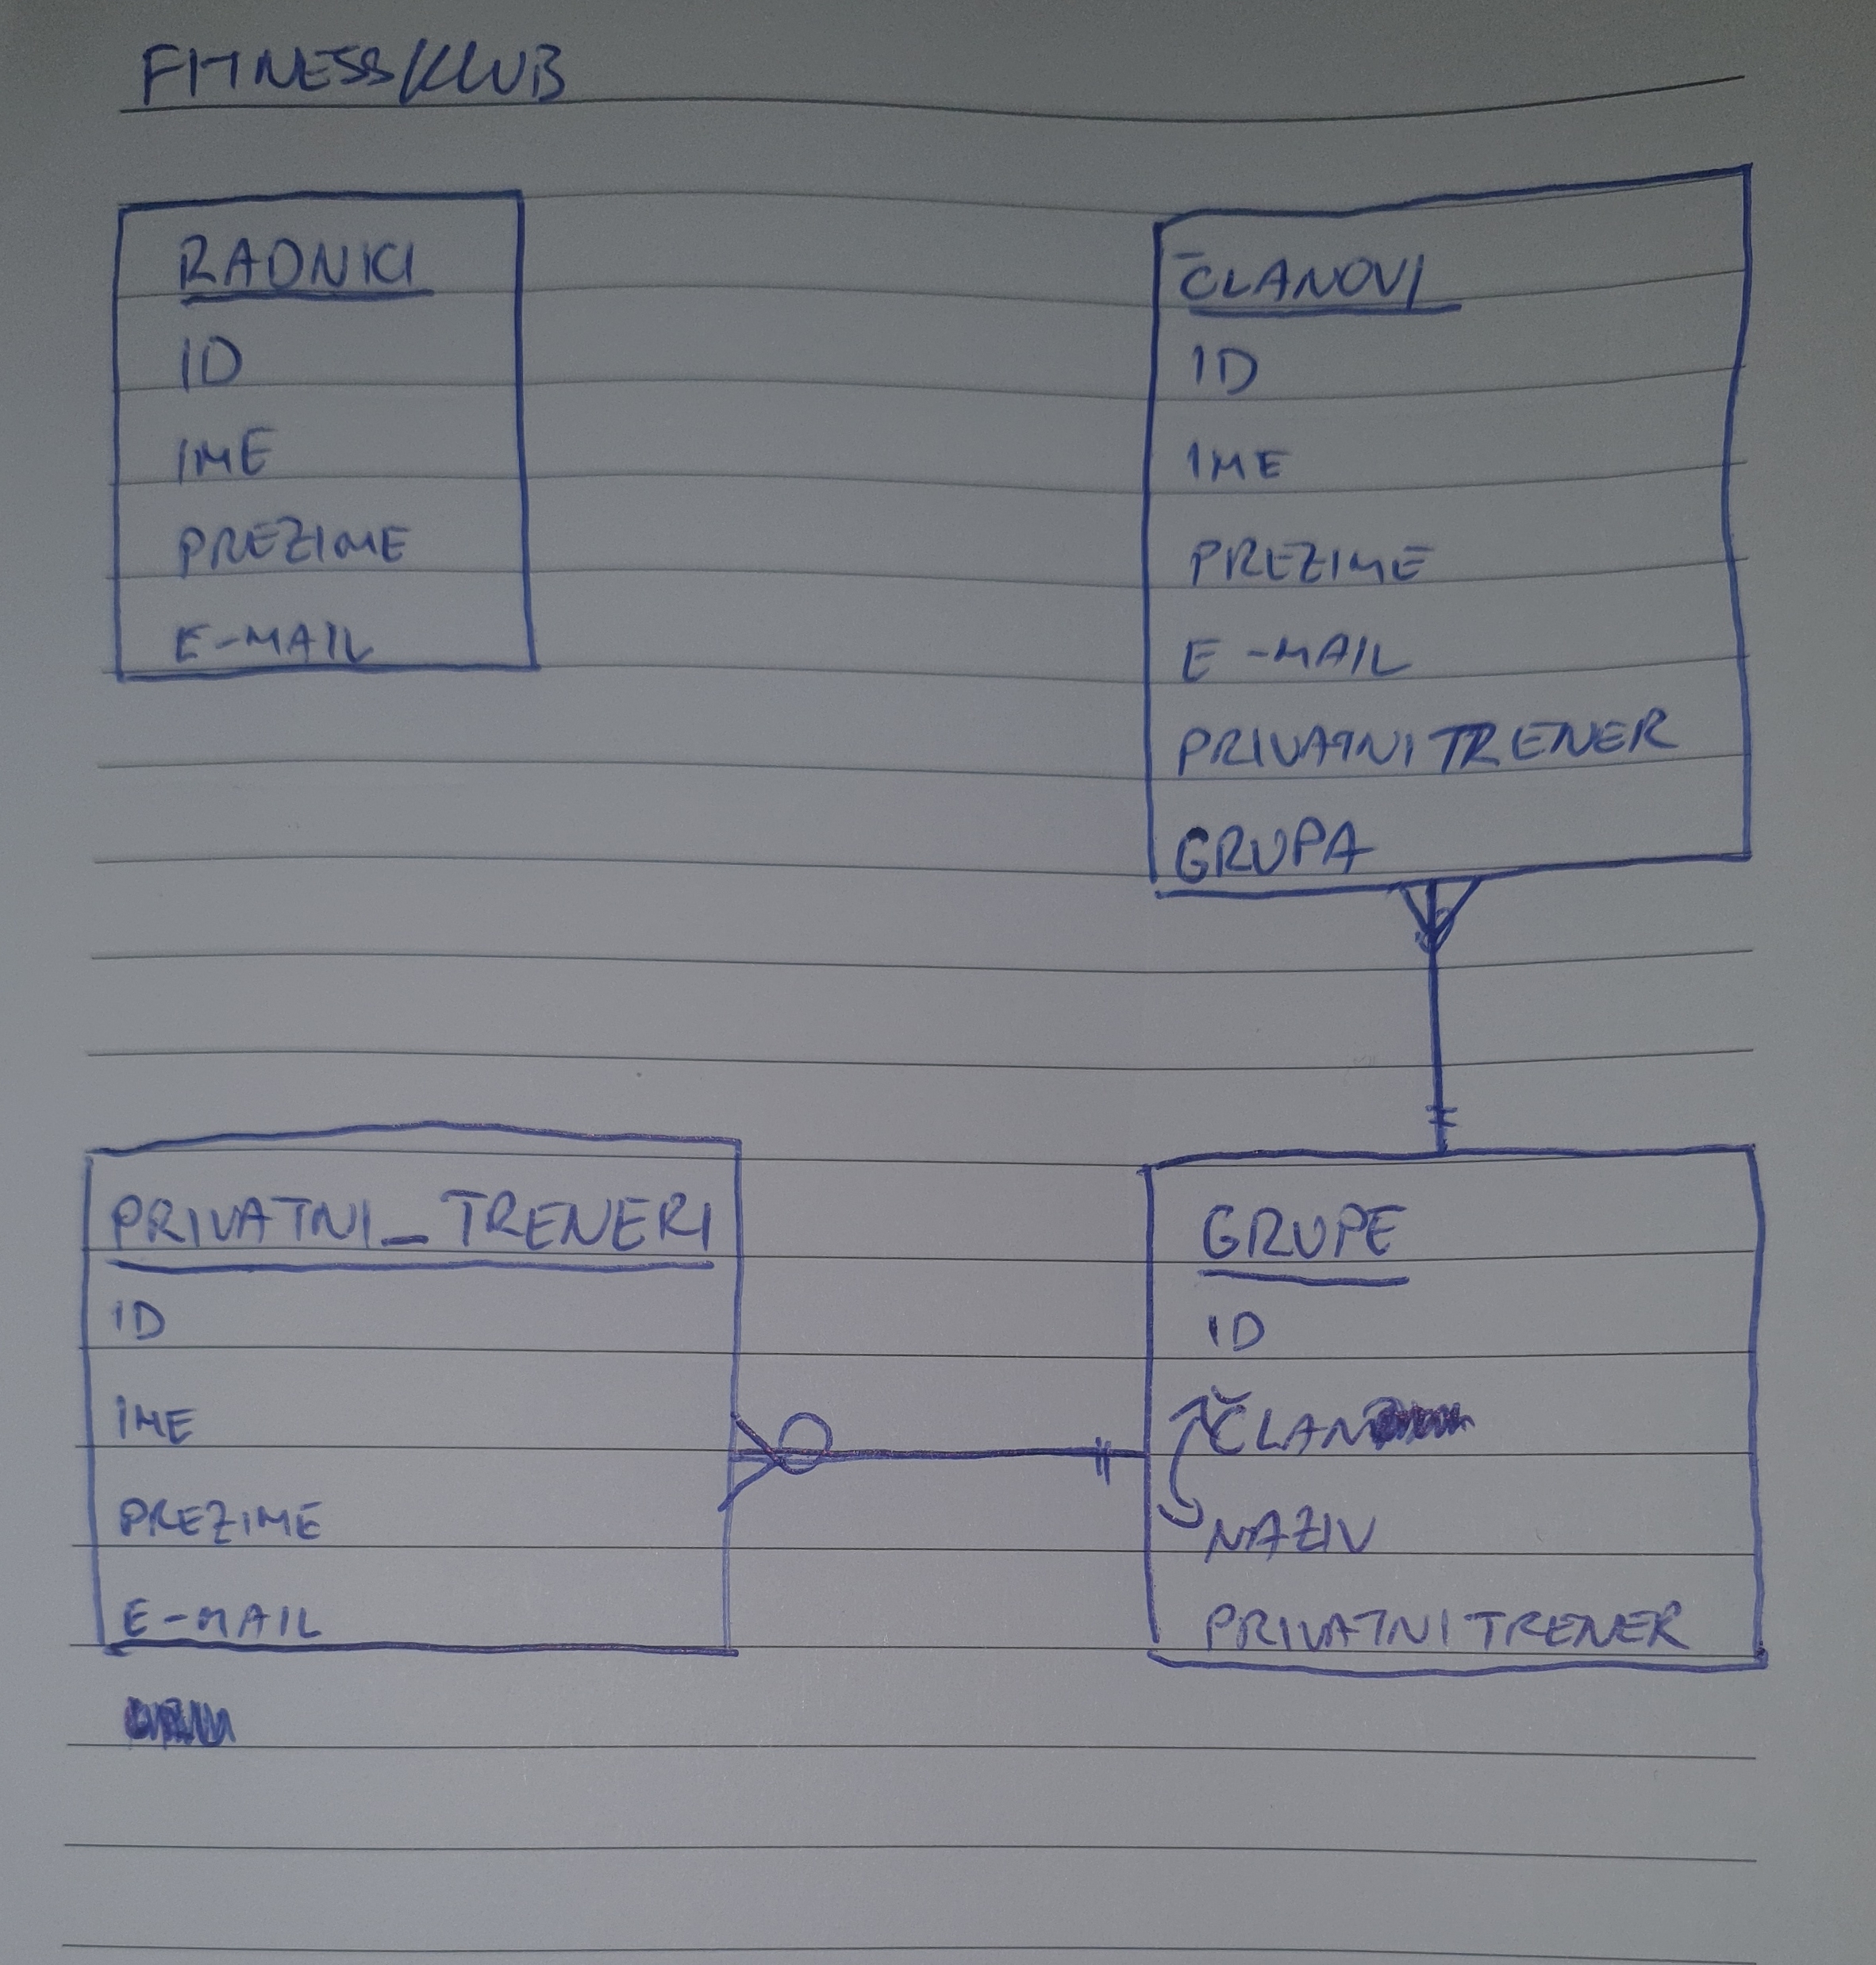 FITNESS/KLUB
RADNICI
ID
IME
PREZIME
E-MAIL
ČLANOVI
ID
IME
PREZIME
E-MAIL
PRIVATNI TRENER
GRUPA
PRIVATNI_TRENERI
ID
IME
PREZIME
E-MAIL
GRUPE
ID
ČLAN
NAZIV
PRIVATNI TRENER